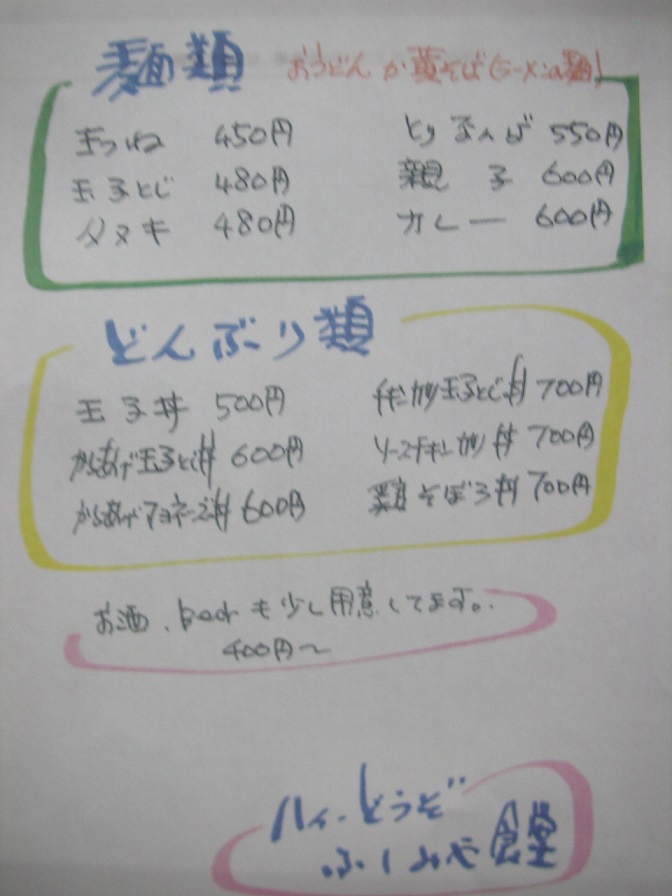 麺類 おうどんか黄そば(ラーメンの麺)
きつね 450円 とりなんば 550円
玉子とじ 480円 親子 600円
タヌキ 480円 カレー 600円
どんぶり類
玉子丼 500円 チキンカツ玉子とじ丼 700円
からあげ玉子とじ丼 600円 ソースチキンカツ丼 700円
からあげマヨネーズ丼 600円 鶏そぼろ丼 700円
お酒、beerも少し用意してます。
400円～
ハイ、どうぞ
ふしみや食堂